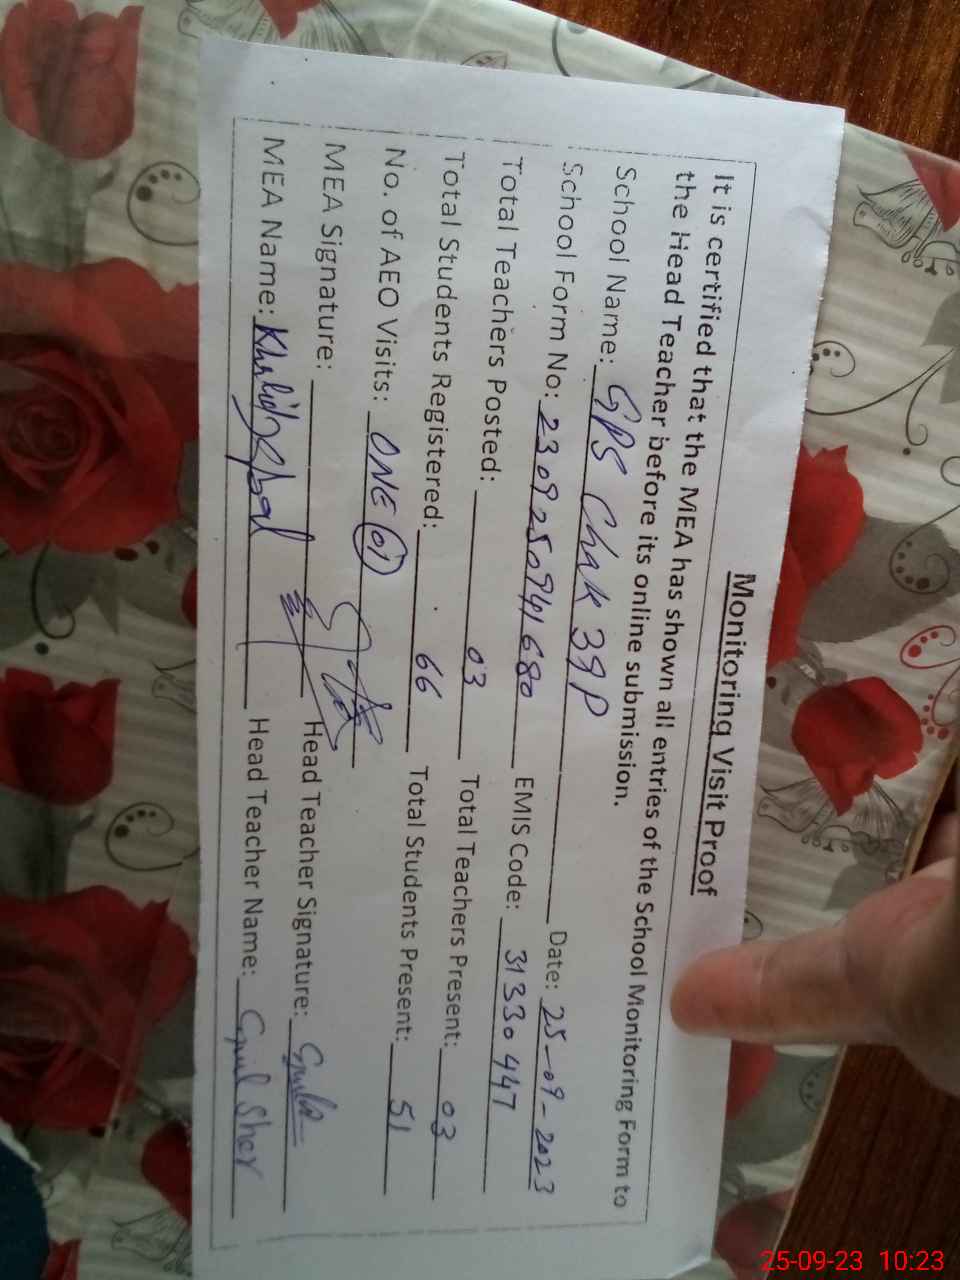 Monitoring Visit Proof
It is certified that the MEA has shown all entries of the School Monitoring Form to
the Head Teacher before its online submission.
School Name: GPS Chak 39P Date: 25-09-2023
School Form No: 2309250941680 EMIS Code: 31330447
Total Teachers Posted: 03 Total Teachers Present: 03
Total Students Registered: 66 Total Students Present: 51
No. of AEO Visits: ONE (01)
MEA Signature: Head Teacher Signature:
MEA Name: Head Teacher Name: Gul Sher
25-09-23 10:23